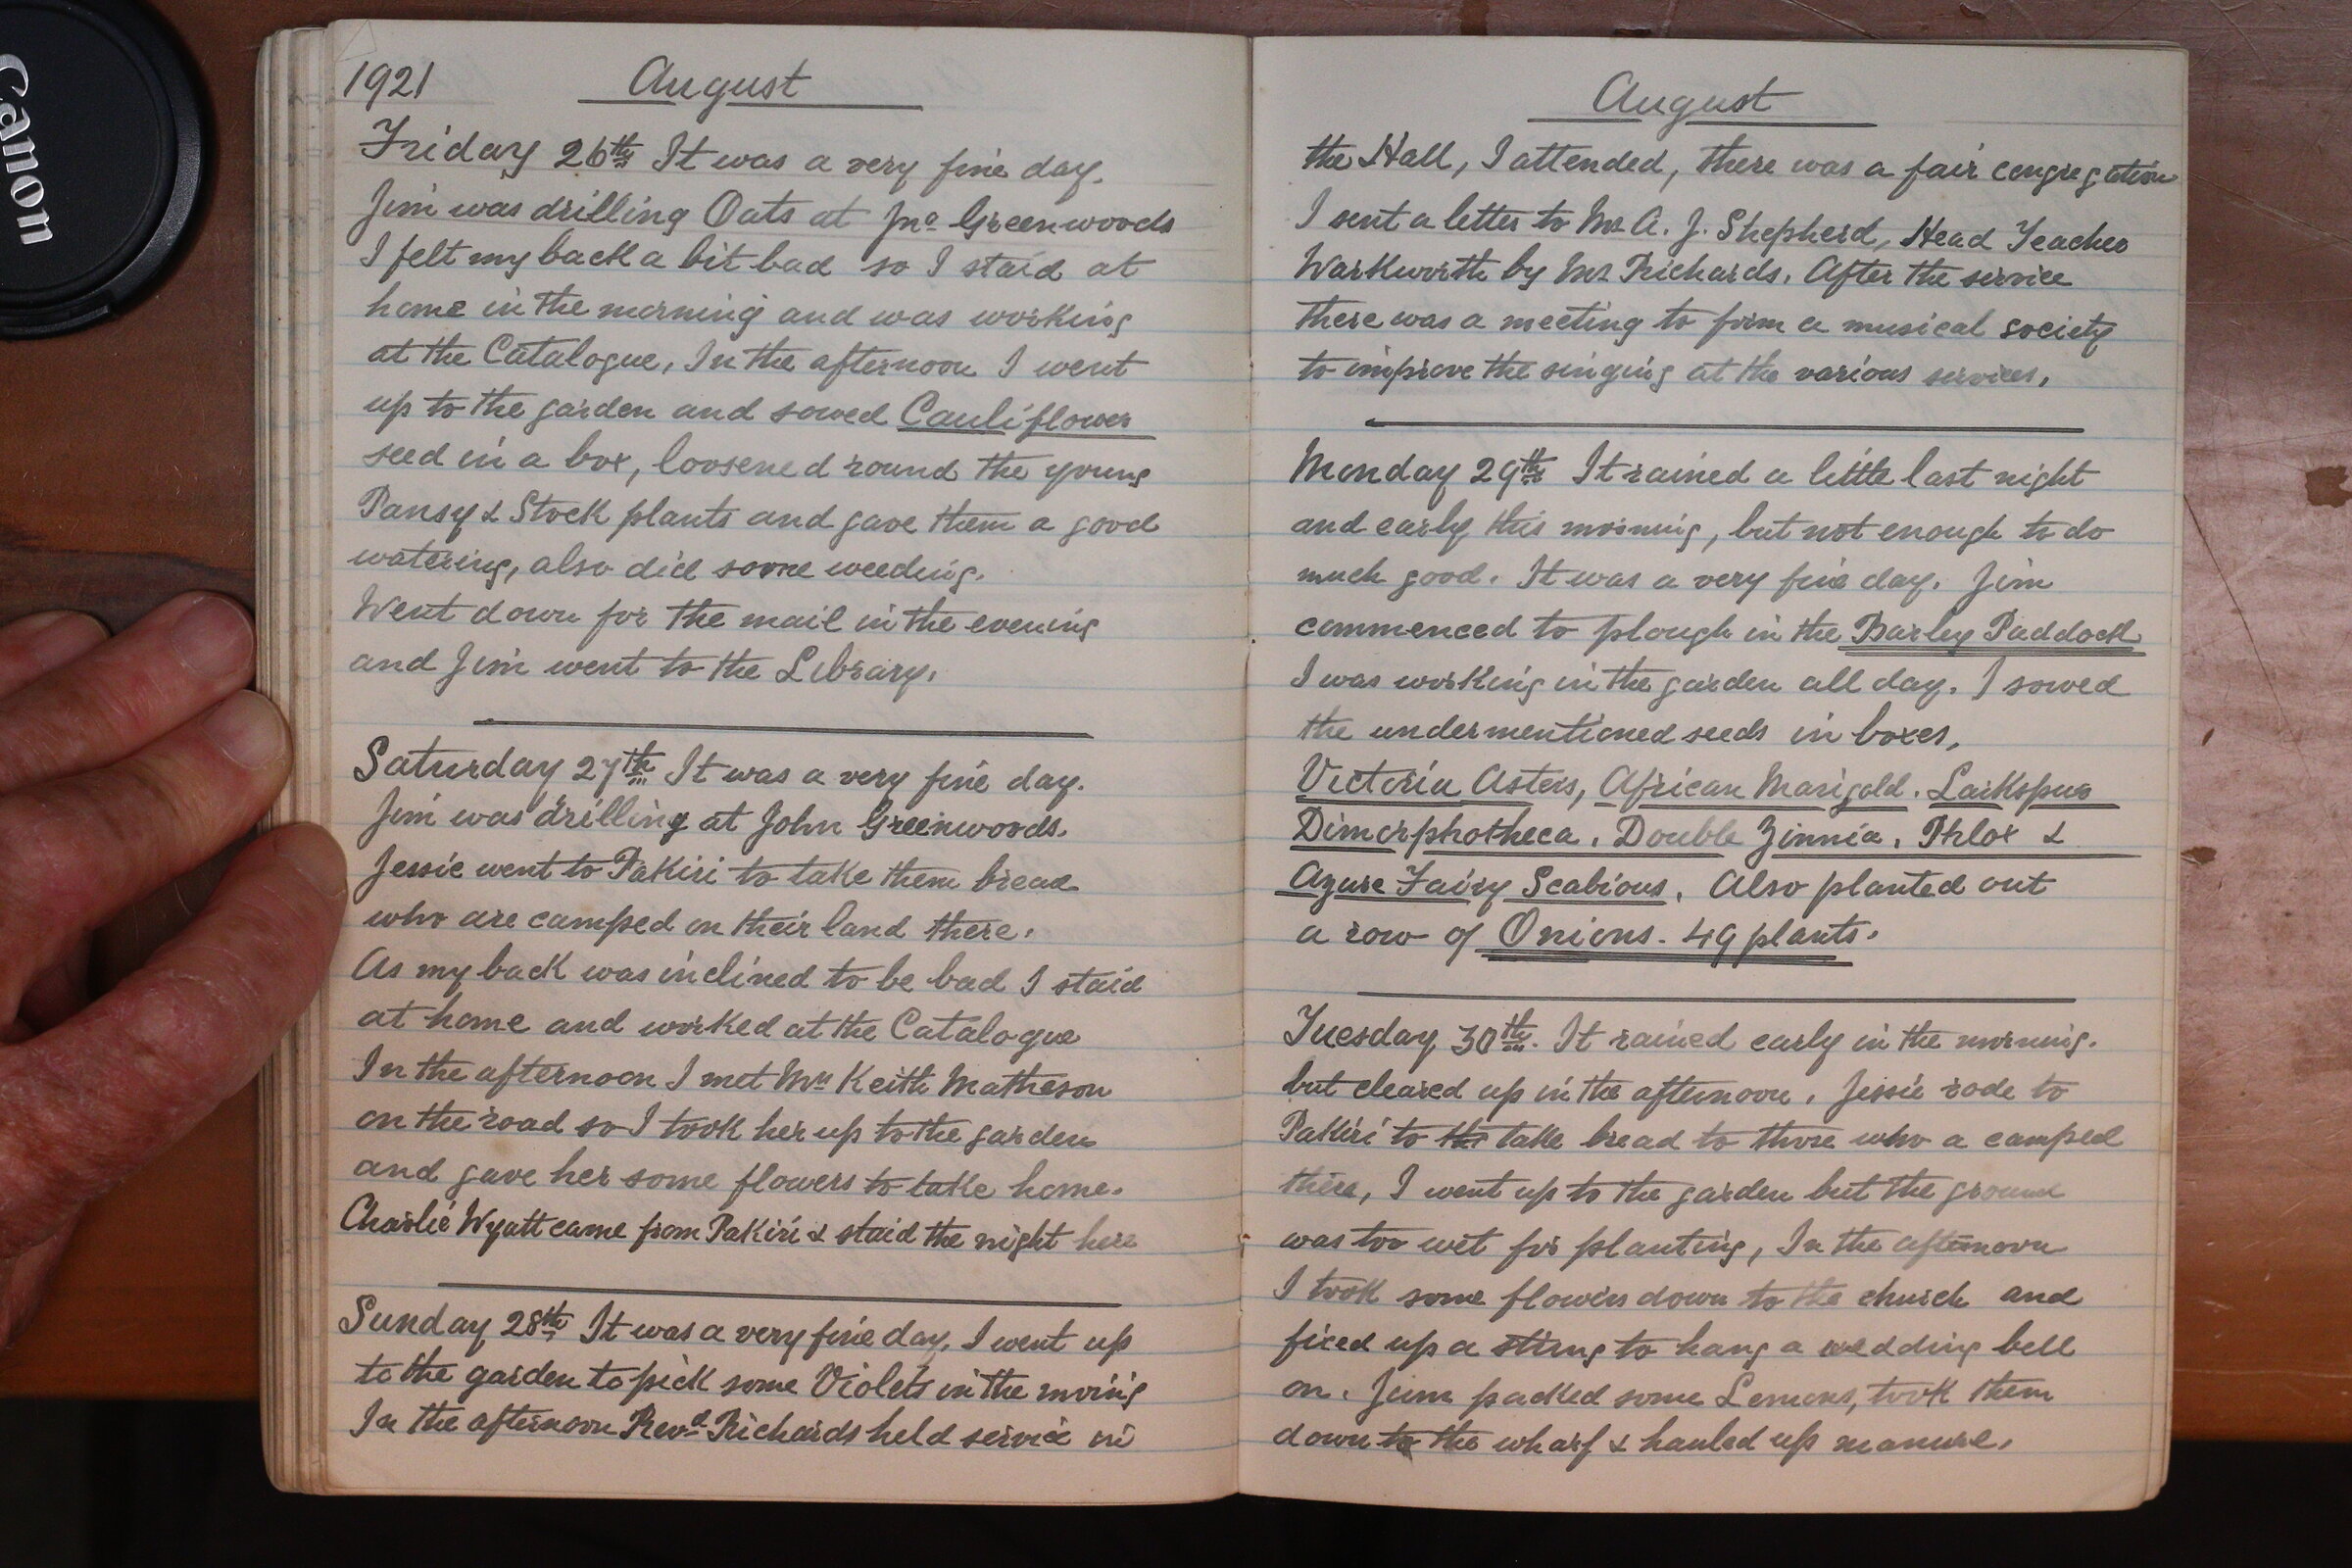 Canon
1921 August
Friday 26th It was a very fine day.
Jim was drilling Oats at Jno Greenwoods
I felt my back a bit bad so I staid at
home in the morning and was working
at the Catalogue, In the afternoon I went
up to the garden and sowed Cauliflower
seed in a box, loosened round the young
Pansy & Stock plants and gave them a good
watering, also did some weeding.
Went down for the mail in the evening
and Jim went to the Library.
Saturday 27th It was a very fine day.
Jim was drilling at John Greenwoods.
Jessie went to Pakiri to take them bread
who are camped on their land there.
As my back was inclined to be bad I staid
at home and worked at the Catalogue
In the afternoon I met Mrs Keith Matheson
on the road so I took her up to the garden
and gave her some flowers to take home.
Charlie Wyatt came from Pakiri & staid the night here
Sunday 28th It was a very fine day. I went up
to the garden to pick some Violets in the moring
In the afternoon Revd Richards held service in
August
the Hall, I attended, there was a fair congregation
I sent a letter to Mr A. J. Shepherd, Head Teacher
Warkworth by Mr Richards. After the service
there was a meeting to form a musical society
to improve the singing at the various services.
Monday 29th It rained a little last night
and early this morning, but not enough to do
much good. It was a very fine day. Jim
commenced to plough in the Barley Paddock
I was working in the garden all day. I sowed
the undermentioned seeds in boxes,
Victoria Asters, African Marigold. Larkspur
Dimorphotheca. Double Zinnia. Phlox &
Azure Fairy Scabious. Also planted out
a row of Onions. 49 plants.
Tuesday 30th. It rained early in the morning.
but cleared up in the afternoon. Jessie rode to
Pakiri to the take bread to those who a camped
there, I went up to the garden but the ground
was too wet for planting, In the afternoon
I took some flowers down to the church and
fixed up a string to hang a wedding bell
on. Jim packed some Lemons, took them
down to the wharf & hauled up manure.